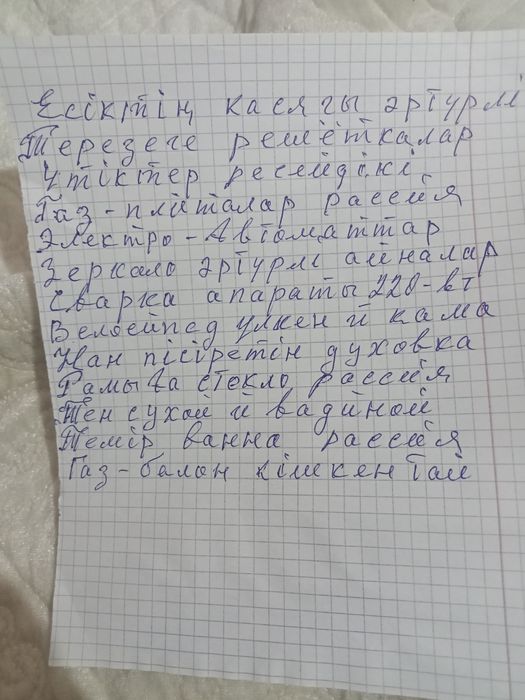 Есіктің касягы әртурлі
Терезеге решёткалар
Утіктер ресейдікі
Газ-плиталар рассия
Электро-Автоматтар
Зеркало әртурлі айналар
Сварка апараты 220-вт
Велосипед улкен й кама
Нан пісіретін духовка
Рамы ва стекло рассия
Тен сухой й вадиной
Темір ванна рассия
Газ-балон кішкентай